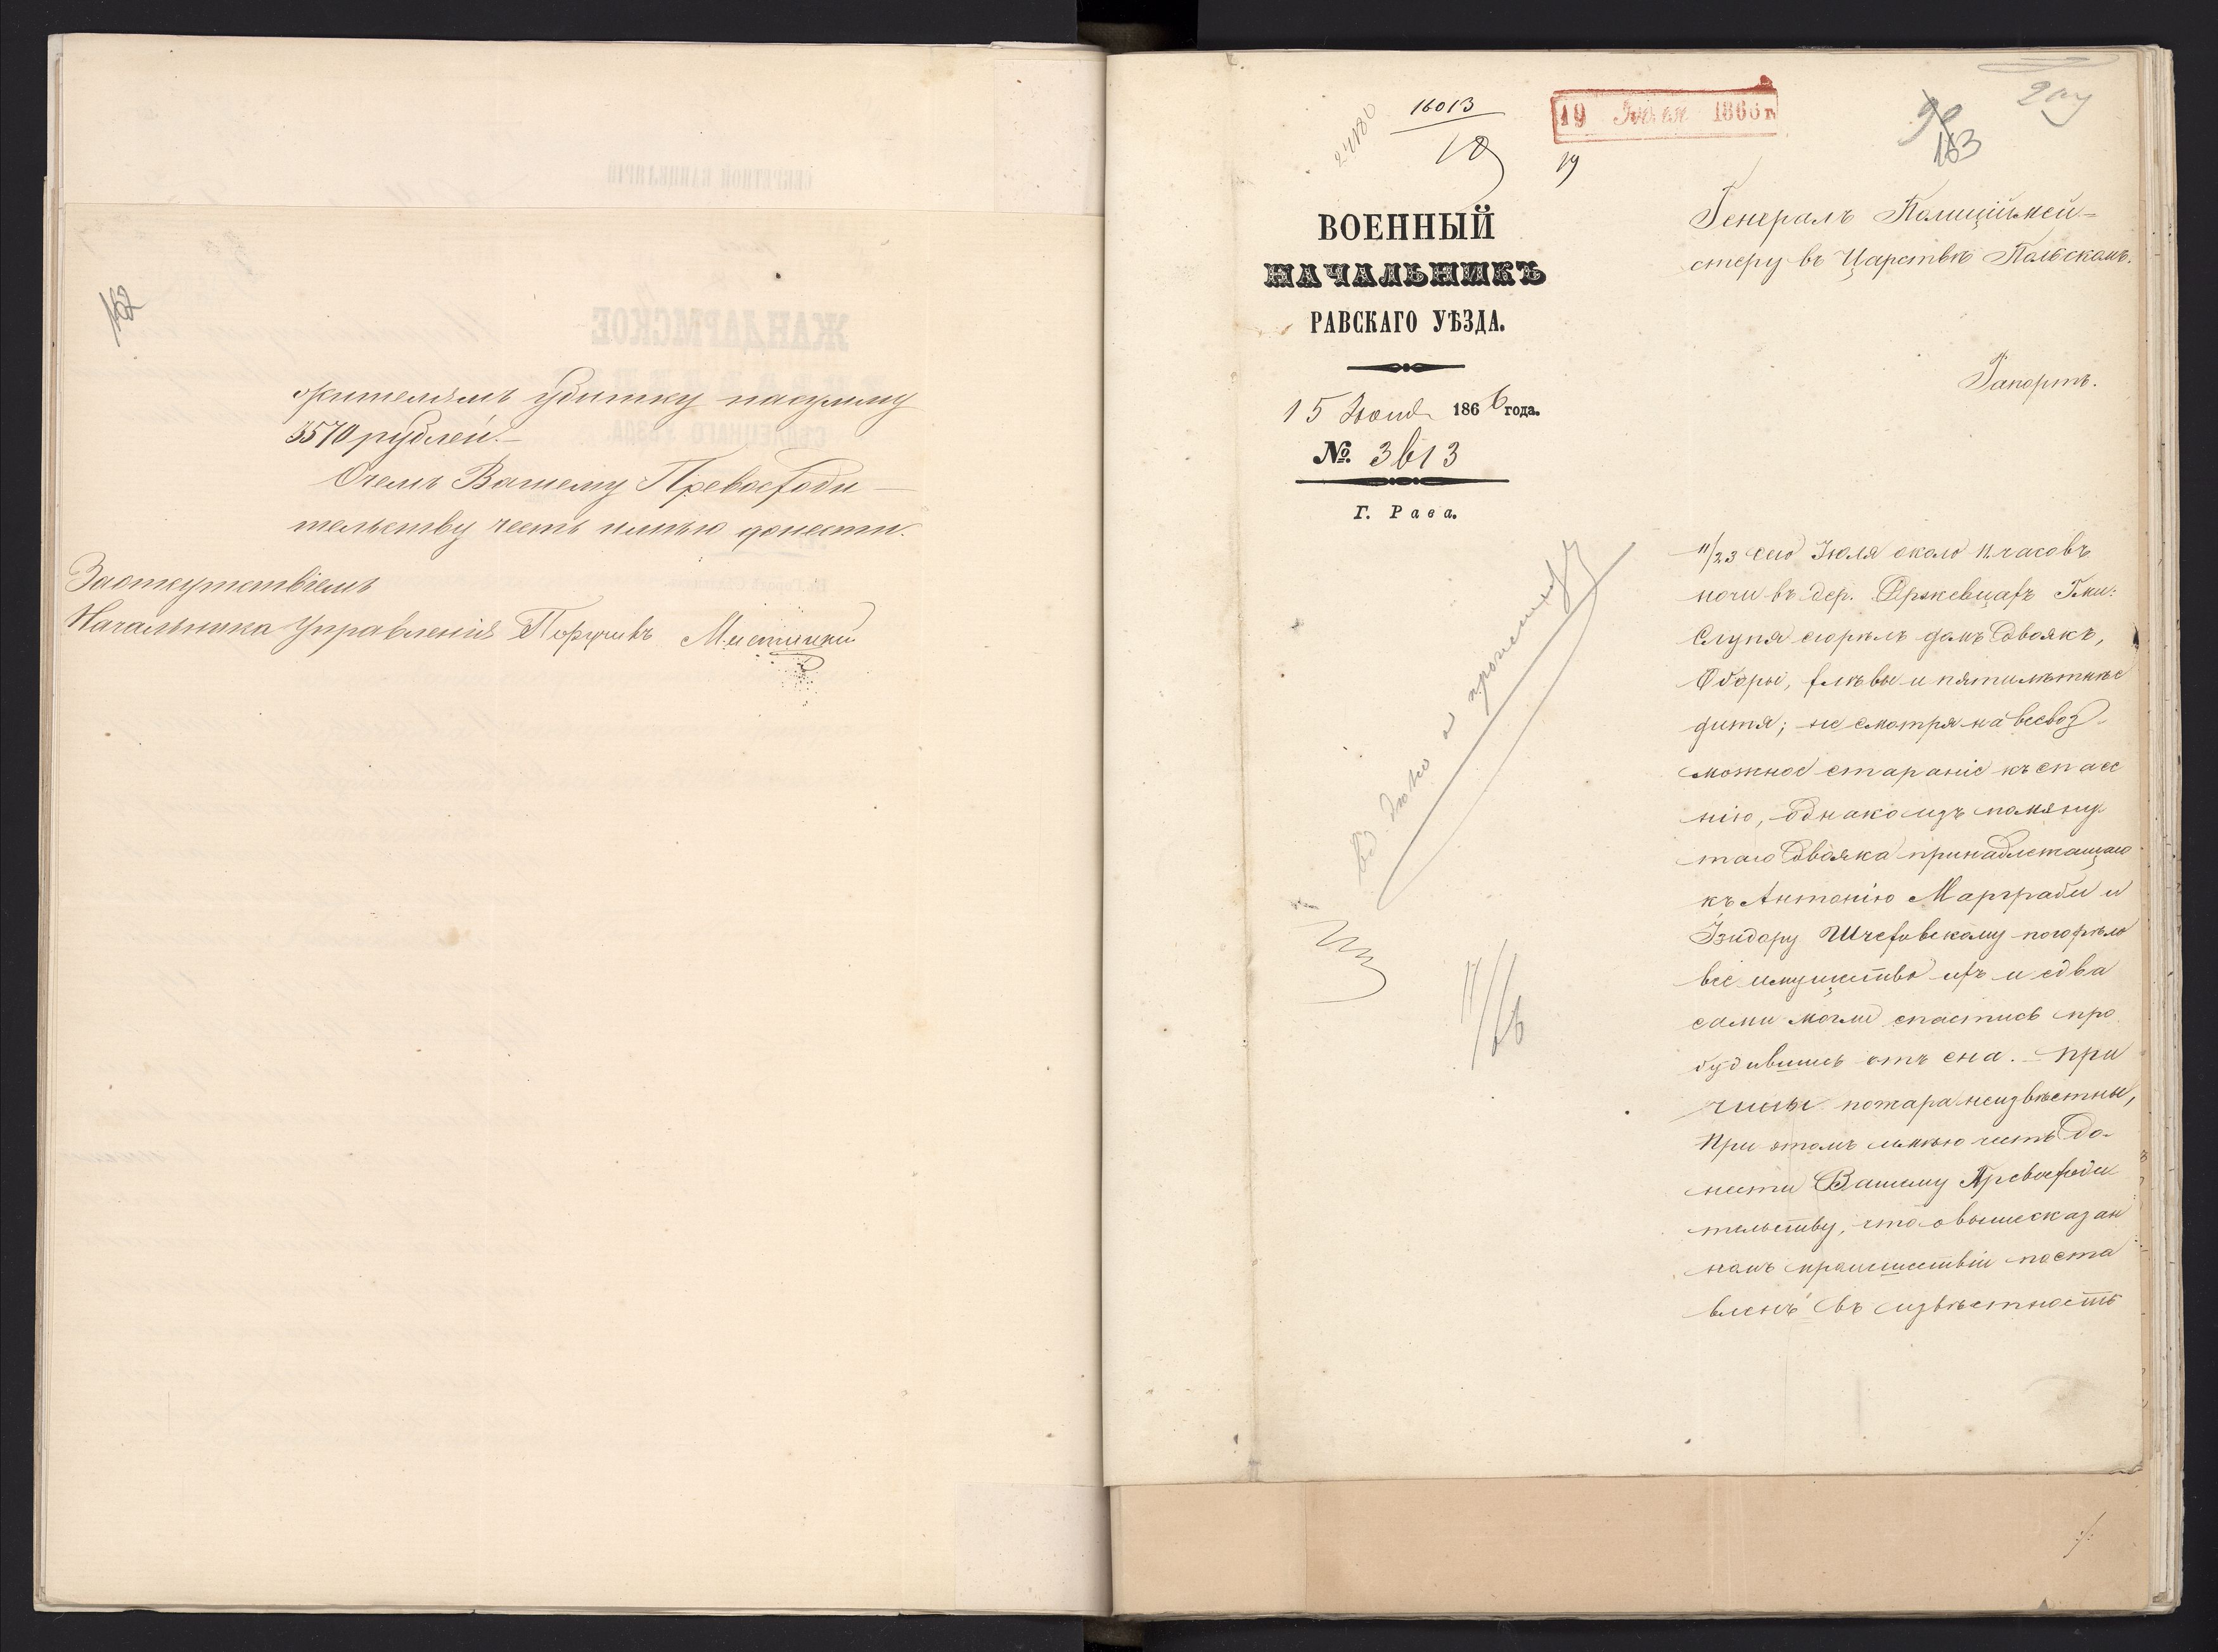 162
жителямъ убытку на сумму
3570 рублей.—
О чемъ Вашему Превосходи—
тельству честь имѣю донести.
За отсутствіемъ
Начальника Управленія Поручикъ
24180
16013
19
19 Іюля 1866 г.
163
ВОЕННЫЙ
НАЧАЛЬНИКЪ
РАВСКАГО УѢЗДА.
15 Іюля 1866 года.
№ 3613
Г. Рава.
Генералъ Полиціймей=
стеру въ Царствѣ Польскомъ.
Рапортъ.
11/23 сего Іюля около 11 часовъ
ночи въ дер. Држевцахъ Гми:
Слупя сгорѣлъ домъ Двоякъ,
Оборы, хлѣвы и пятилѣтнѣе
дитя; не смотря на всевоз-
можное стараніе къ спасе
нію, однако изъ помяну
таго Двояка принадлежащаго
къ Антонію Маргради и
Изидору Шчеховскому погорѣло
все имущество ихъ и едва
сами могли спастись про
будившись отъ сна. — При
чины пожара неизвѣстны,
При этомъ имѣю честь До-
нести Вашему Превосходи
тельству, что о вышесказан
номъ происшествіи поста
вленъ въ извѣстность